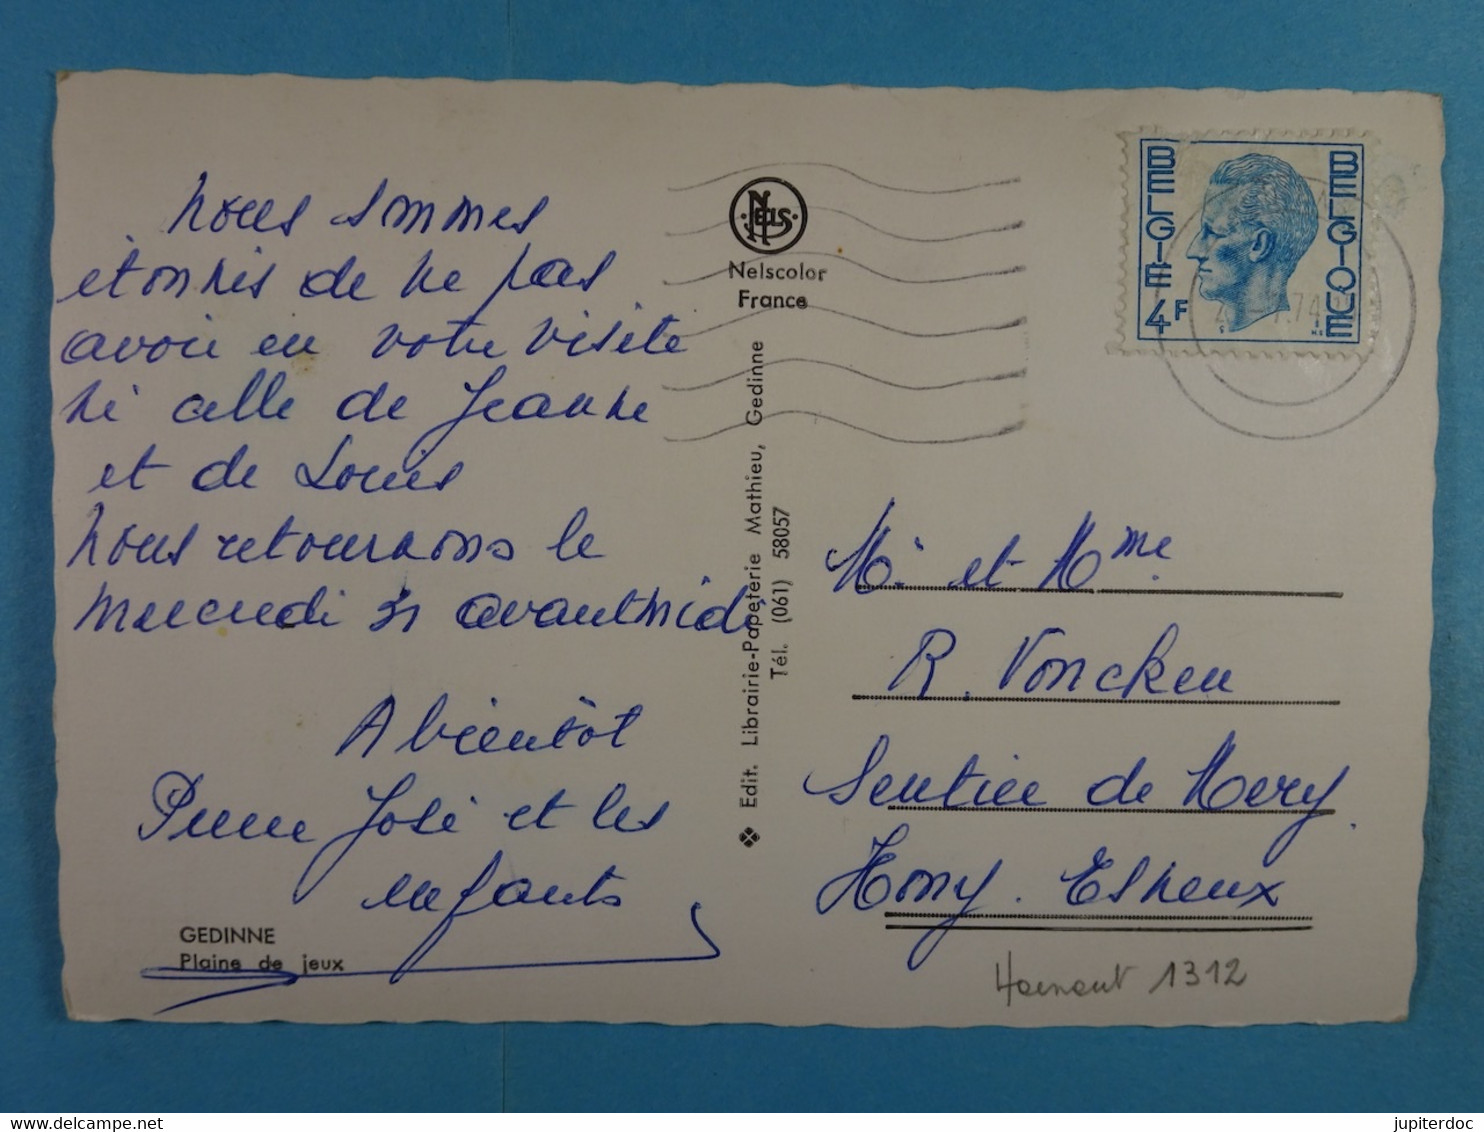 Nous sommes
étonnés de ne pas
avoir eu votre visite
ni celle de Jeanne
et de Louis
Nous retournons le
mercredi 31 avant midi
A bientôt
Pierre José et les
enfants
GEDINNE
Plaine de jeux
NELS
Nelscolor
France
Edit. Librairie-Papeterie Mathieu, Gedinne
Tél. (061) 58057
BELGIE 4F
BELGIQUE
74
Mr et Mme
R. Voncken
Sentier de Mery.
Hony. Esneux
Hainaut 1312
jupiterdoc